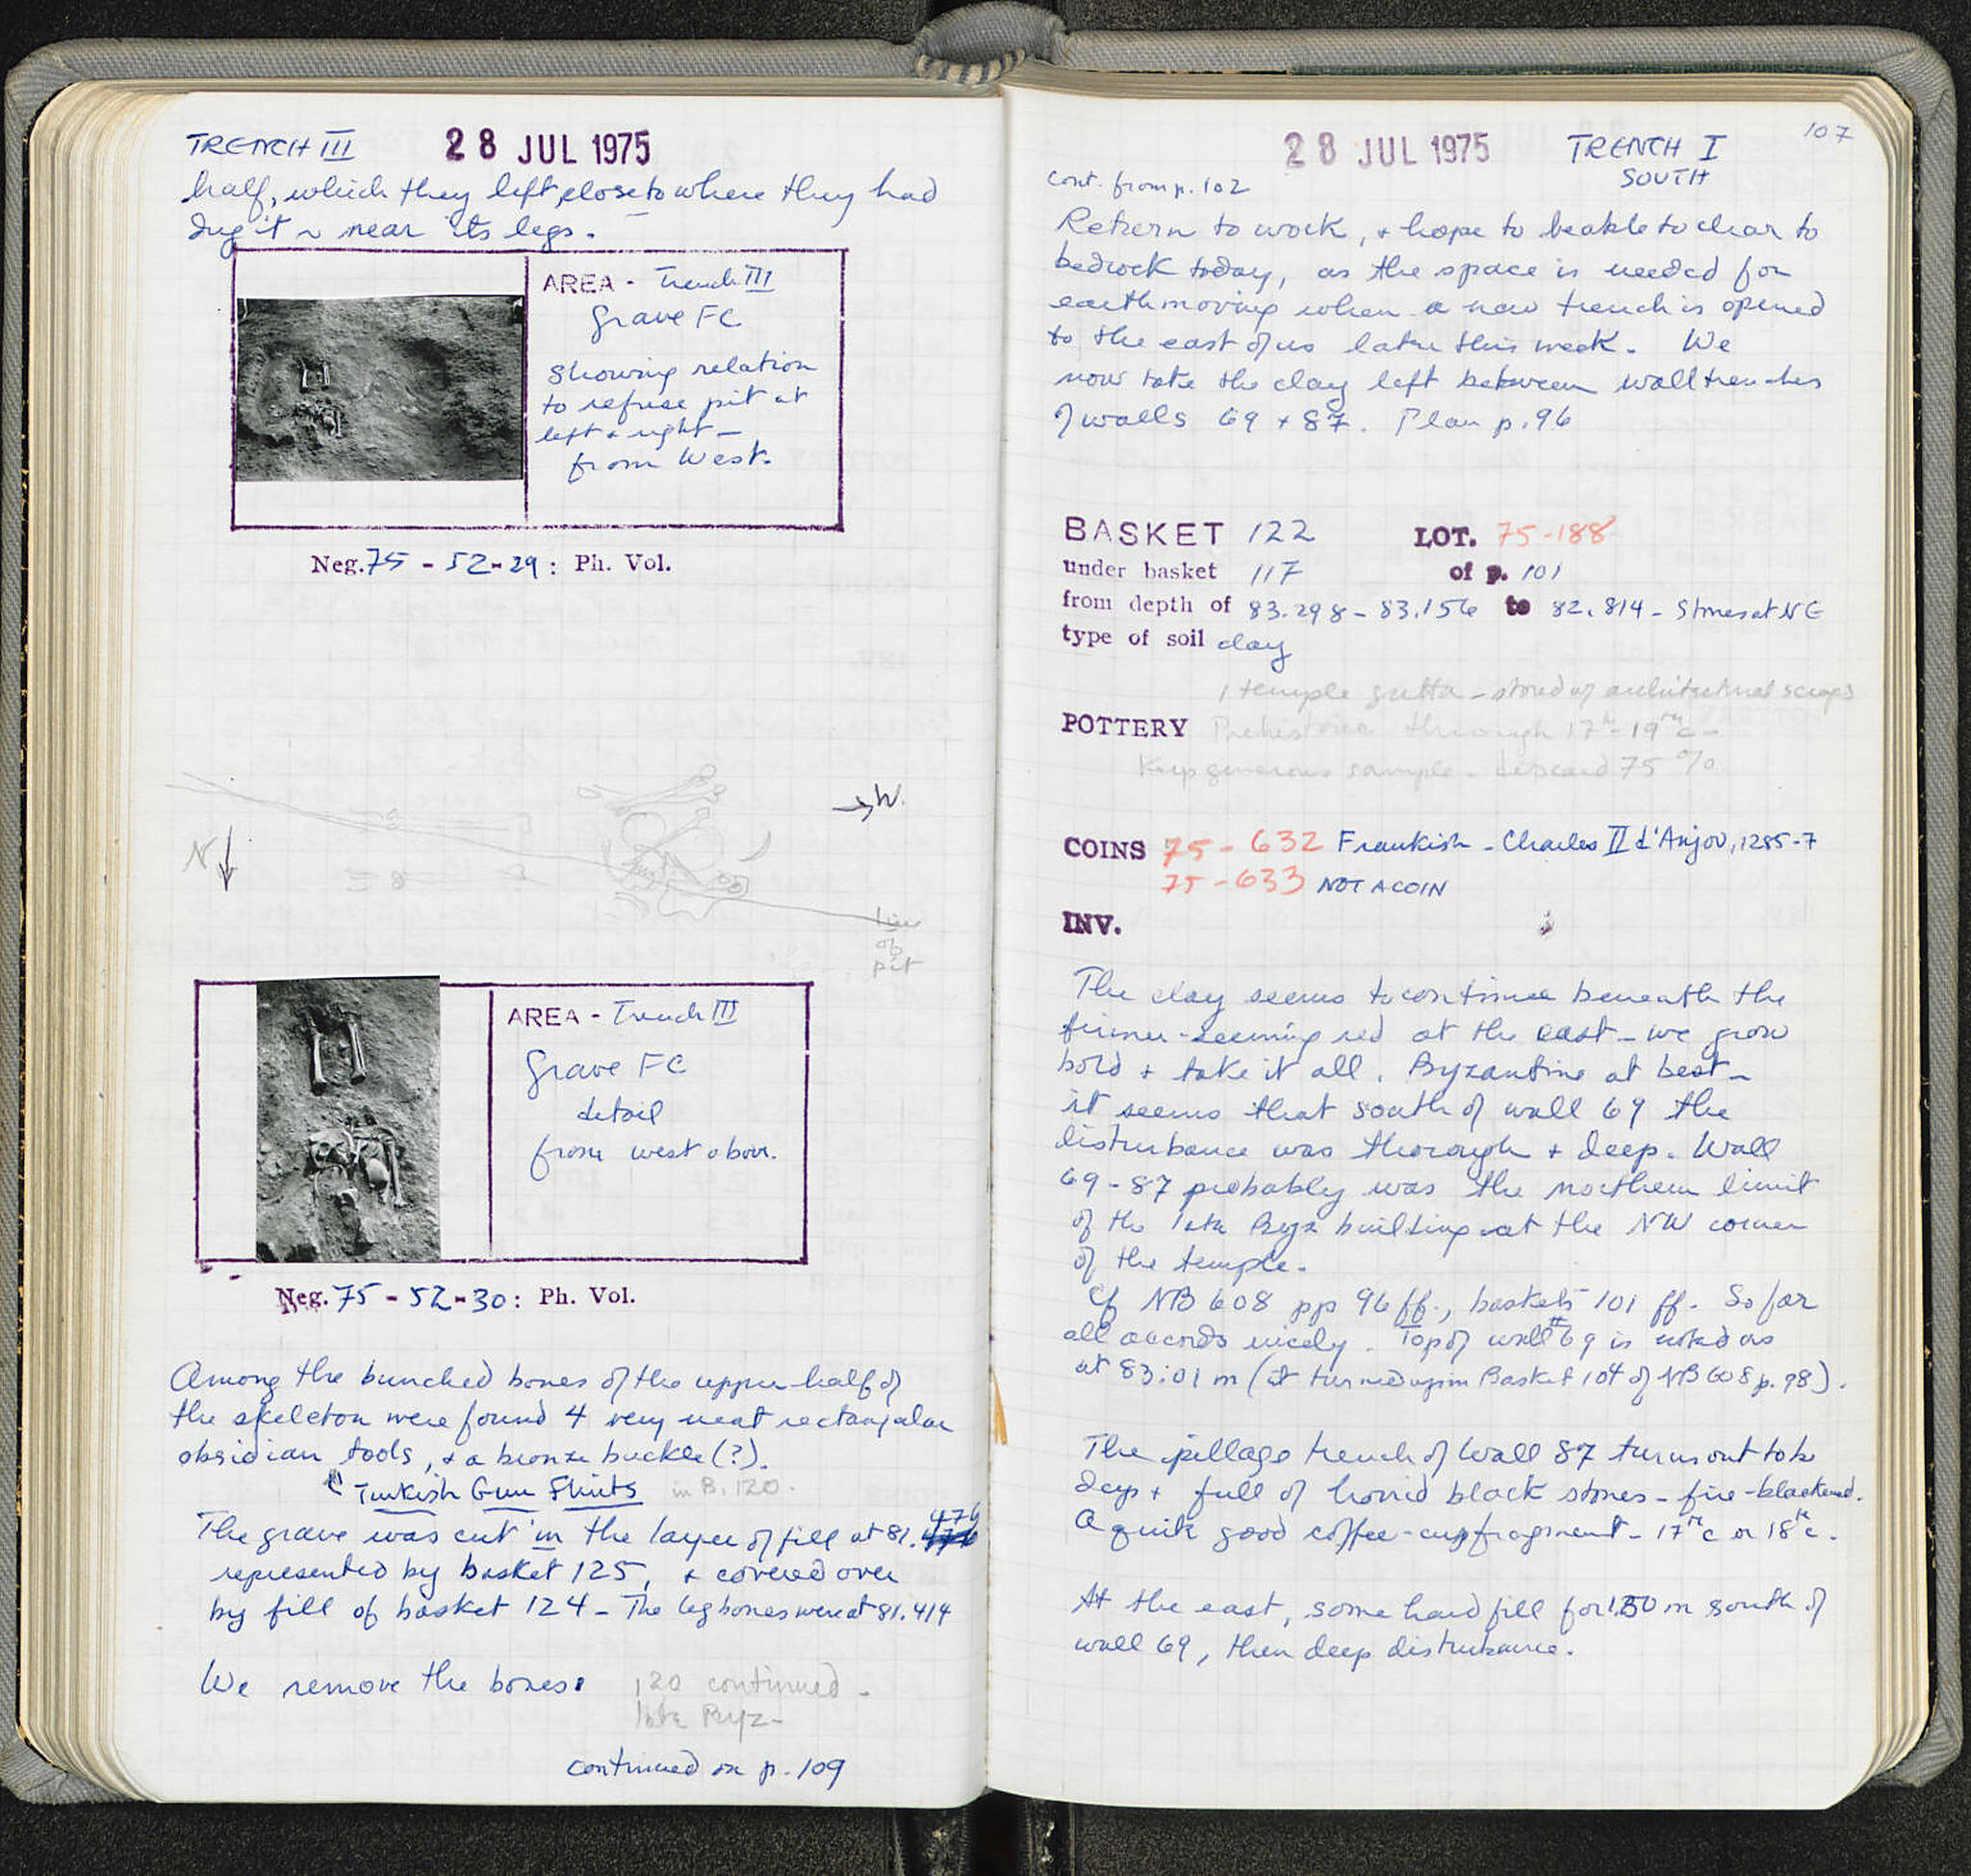 TRENCH III 28 JUL 1975
half, which they left, close to where they had
dug it ~ near its legs.
AREA - Trench III
Grave FC
showing relation
to refuse pit at
left & right -
from West.
Neg. 75 - 52 - 29 : Ph. Vol.
→ W.
N ↓
line
of
pit
AREA - Trench III
Grave FC
detail
from west above.
Neg. 75 - 52 - 30 : Ph. Vol.
Among the bunched bones of the upper half of
the skeleton were found 4 very neat rectangular
obsidian tools, & a bronze buckle (?).
Turkish Gun Flints in B. 120.
The grave was cut in the layer of fill at 81.476
represented by basket 125, & covered over
by fill of basket 124 - The leg bones were at 81.414
We remove the bones. 120 continued -
late Byz -
continued on p. 109
107
28 JUL 1975 TRENCH I
SOUTH
cont. from p. 102
Return to work, & hope to be able to clear to
bedrock today, as the space is needed for
earthmoving when a new trench is opened
to the east of us later this week. We
now take the clay left between wall trenches
of walls 69 & 87. Plan p. 96
BASKET 122 LOT. 75-188
under basket 117 of p. 101
from depth of 83.298 - 83.156 to 82.814 - Stones at NE
type of soil clay
1 temple gutta - stored w architectural scraps
POTTERY Prehistoric through 17th - 19th c -
Keep generous sample - discard 75%
COINS 75 - 632 Frankish - Charles II d'Anjou, 1285-7
75 - 633 NOT A COIN
INV.
The clay seems to continue beneath the
firmer-seeming red at the east - we grow
bold & take it all. Byzantine at best -
it seems that south of wall 69 the
disturbance was thorough & deep. Wall
69 - 87 probably was the northern limit
of the late Byz building at the NW corner
of the temple.
Cf NB 608 pp 96 ff., baskets 101 ff. So far
all accords nicely. Top of wall 69 is noted as
at 83.01 m (it turned up in Basket 104 of NB 608 p. 98).
The pillage trench of Wall 87 turns out to be
deep & full of horrid black stones - fire-blackened.
A quite good coffee-cup fragment - 17th c or 18th c.
At the east, some hard fill for 1.50 m south of
wall 69, then deep disturbance.